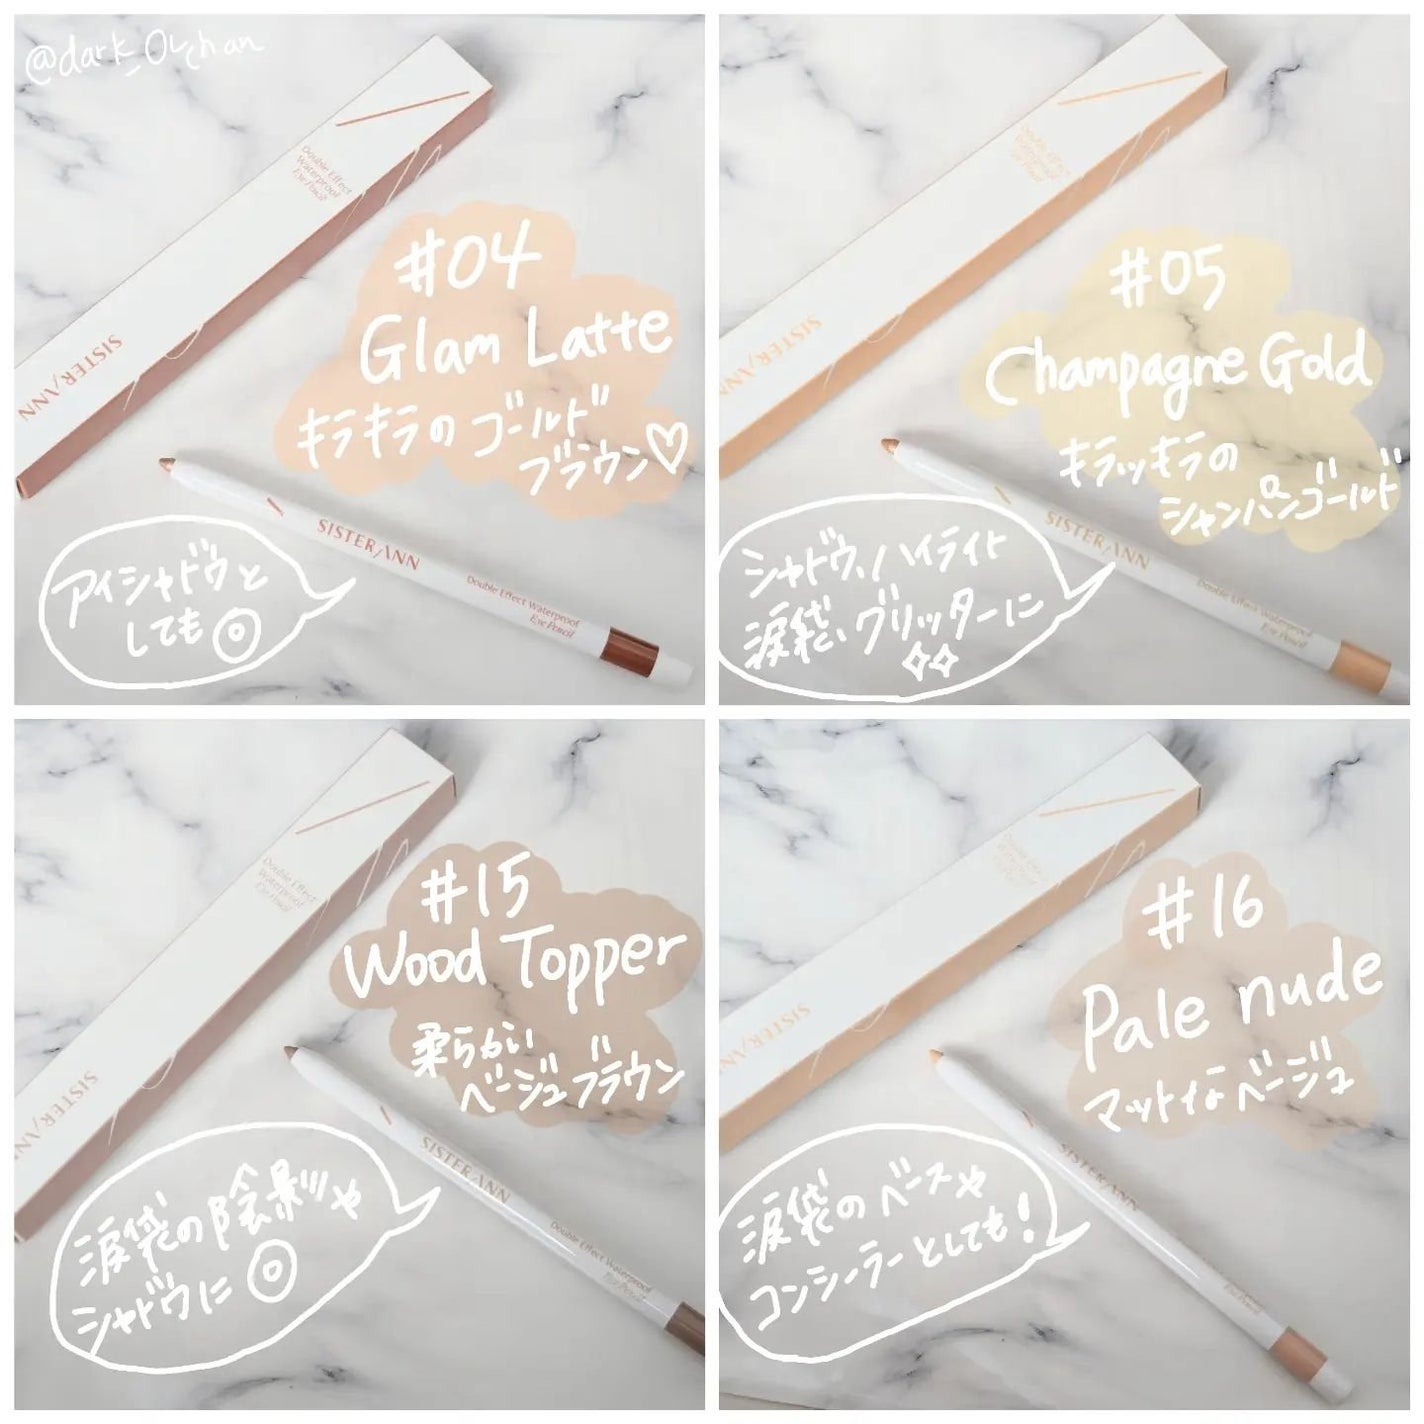 @dark_OLchan
Double Effect
Waterproof
Eye Pencil
SISTER ANN
#04
Glam Latte
キラキラの ゴールド
ブラウン♡
SISTER ANN
Double Effect Waterproof
Eye Pencil
アイシャドウと
しても◎
Double Effect
Waterproof
Eye Pencil
SISTER ANN
#05
Champagne Gold
キラッキラの
シャンパンゴールド
SISTER ANN
Double Effect Waterproof
Eye Pencil
シャドウ、ハイライト
涙袋、グリッターに
Double Effect
Waterproof
Eye Pencil
SISTER ANN
#15
Wood Topper
柔らかい
ベージュブラウン
SISTER ANN
Double Effect Waterproof
Eye Pencil
涙袋の陰影や
シャドウに◎
Double Effect
Waterproof
Eye Pencil
SISTER ANN
#16
Pale nude
マットなベージュ
SISTER ANN
Eye Pencil
涙袋のベースや
コンシーラーとしても!